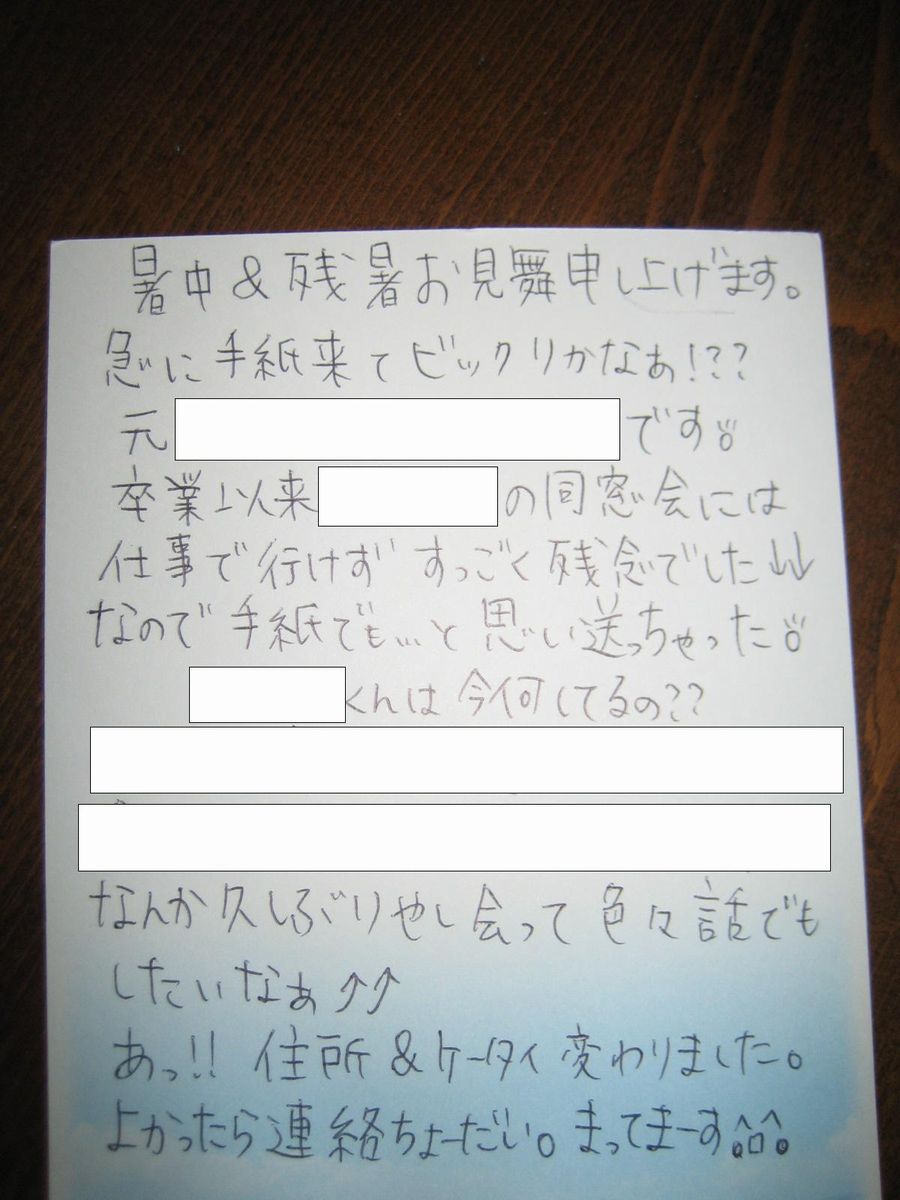 暑中&残暑お見舞申し上げます。
急に手紙来てビックリかなぁ!???
元 です
卒業以来 の同窓会には
仕事で行けず すっごく残念でした↓↓
なので手紙でも…と思い送っちゃった
くんは今何してるの??
なんか久しぶりやし会って色々話でも
したいなぁ↑↑
あっ!! 住所&ケータイ変わりました。
よかったら連絡ちょーだい。まってまーす